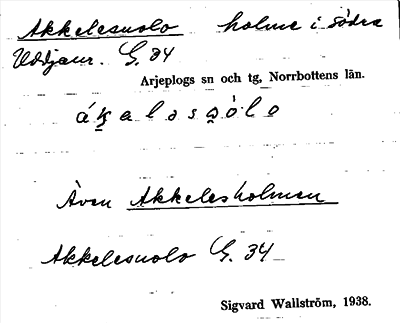 Akkelesuolo holme i södra
Uddjaur. G. 34
Arjeplogs sn och tg, Norrbottens län.
áḱalǝsu̯òlo
Även Akkelesholmen
Akkelesuolo G. 34
Sigvard Wallström, 1938.